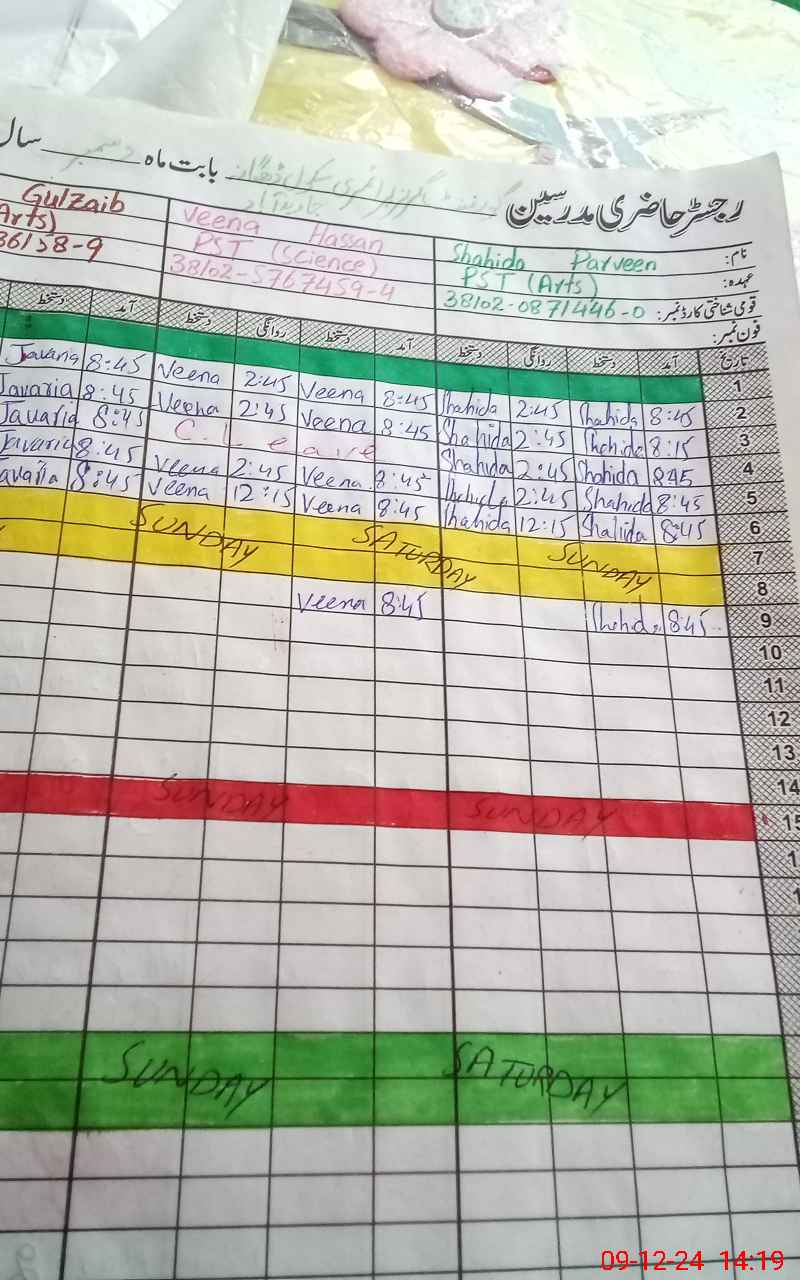 رجسٹر حاضری مدرسین بابت ماہ دسمبر سال
نام: Shahida Parveen Veena Hassan Gulzaib
عہدہ: PST (Arts) PST (Science) Arts)
قومی شناختی کارڈ نمبر: 38102-0871446-0 38102-5767459-4
فون نمبر:
تاریخ آمد دستخط روانگی دستخط آمد دستخط روانگی دستخط آمد دستخط
1
Javaria 8:45 Veena 2:45 Veena 8:45 Shahida 2:45 Shahida 8:45 2
Javaria 8:45 Veena 2:45 Veena 8:45 Shahida 2:45 Shahida 8:15 3
Javaria 8:45 C. Leave Shahida 2:45 Shahida 845 4
Javaria 8:45 Veena 2:45 Veena 8:45 Shahida 2:45 Shahida 8:45 5
avaria 8:45 Veena 12:15 Veena 8:45 Shahida 12:15 Shahida 8:45 6
SUNDAY SATURDAY SUNDAY 7
8
Veena 8:45 Shahida 8:45 9
10
11
12
13
14
SUNDAY SUNDAY 15
1
1
SUNDAY SATURDAY
09-12-24 14:19